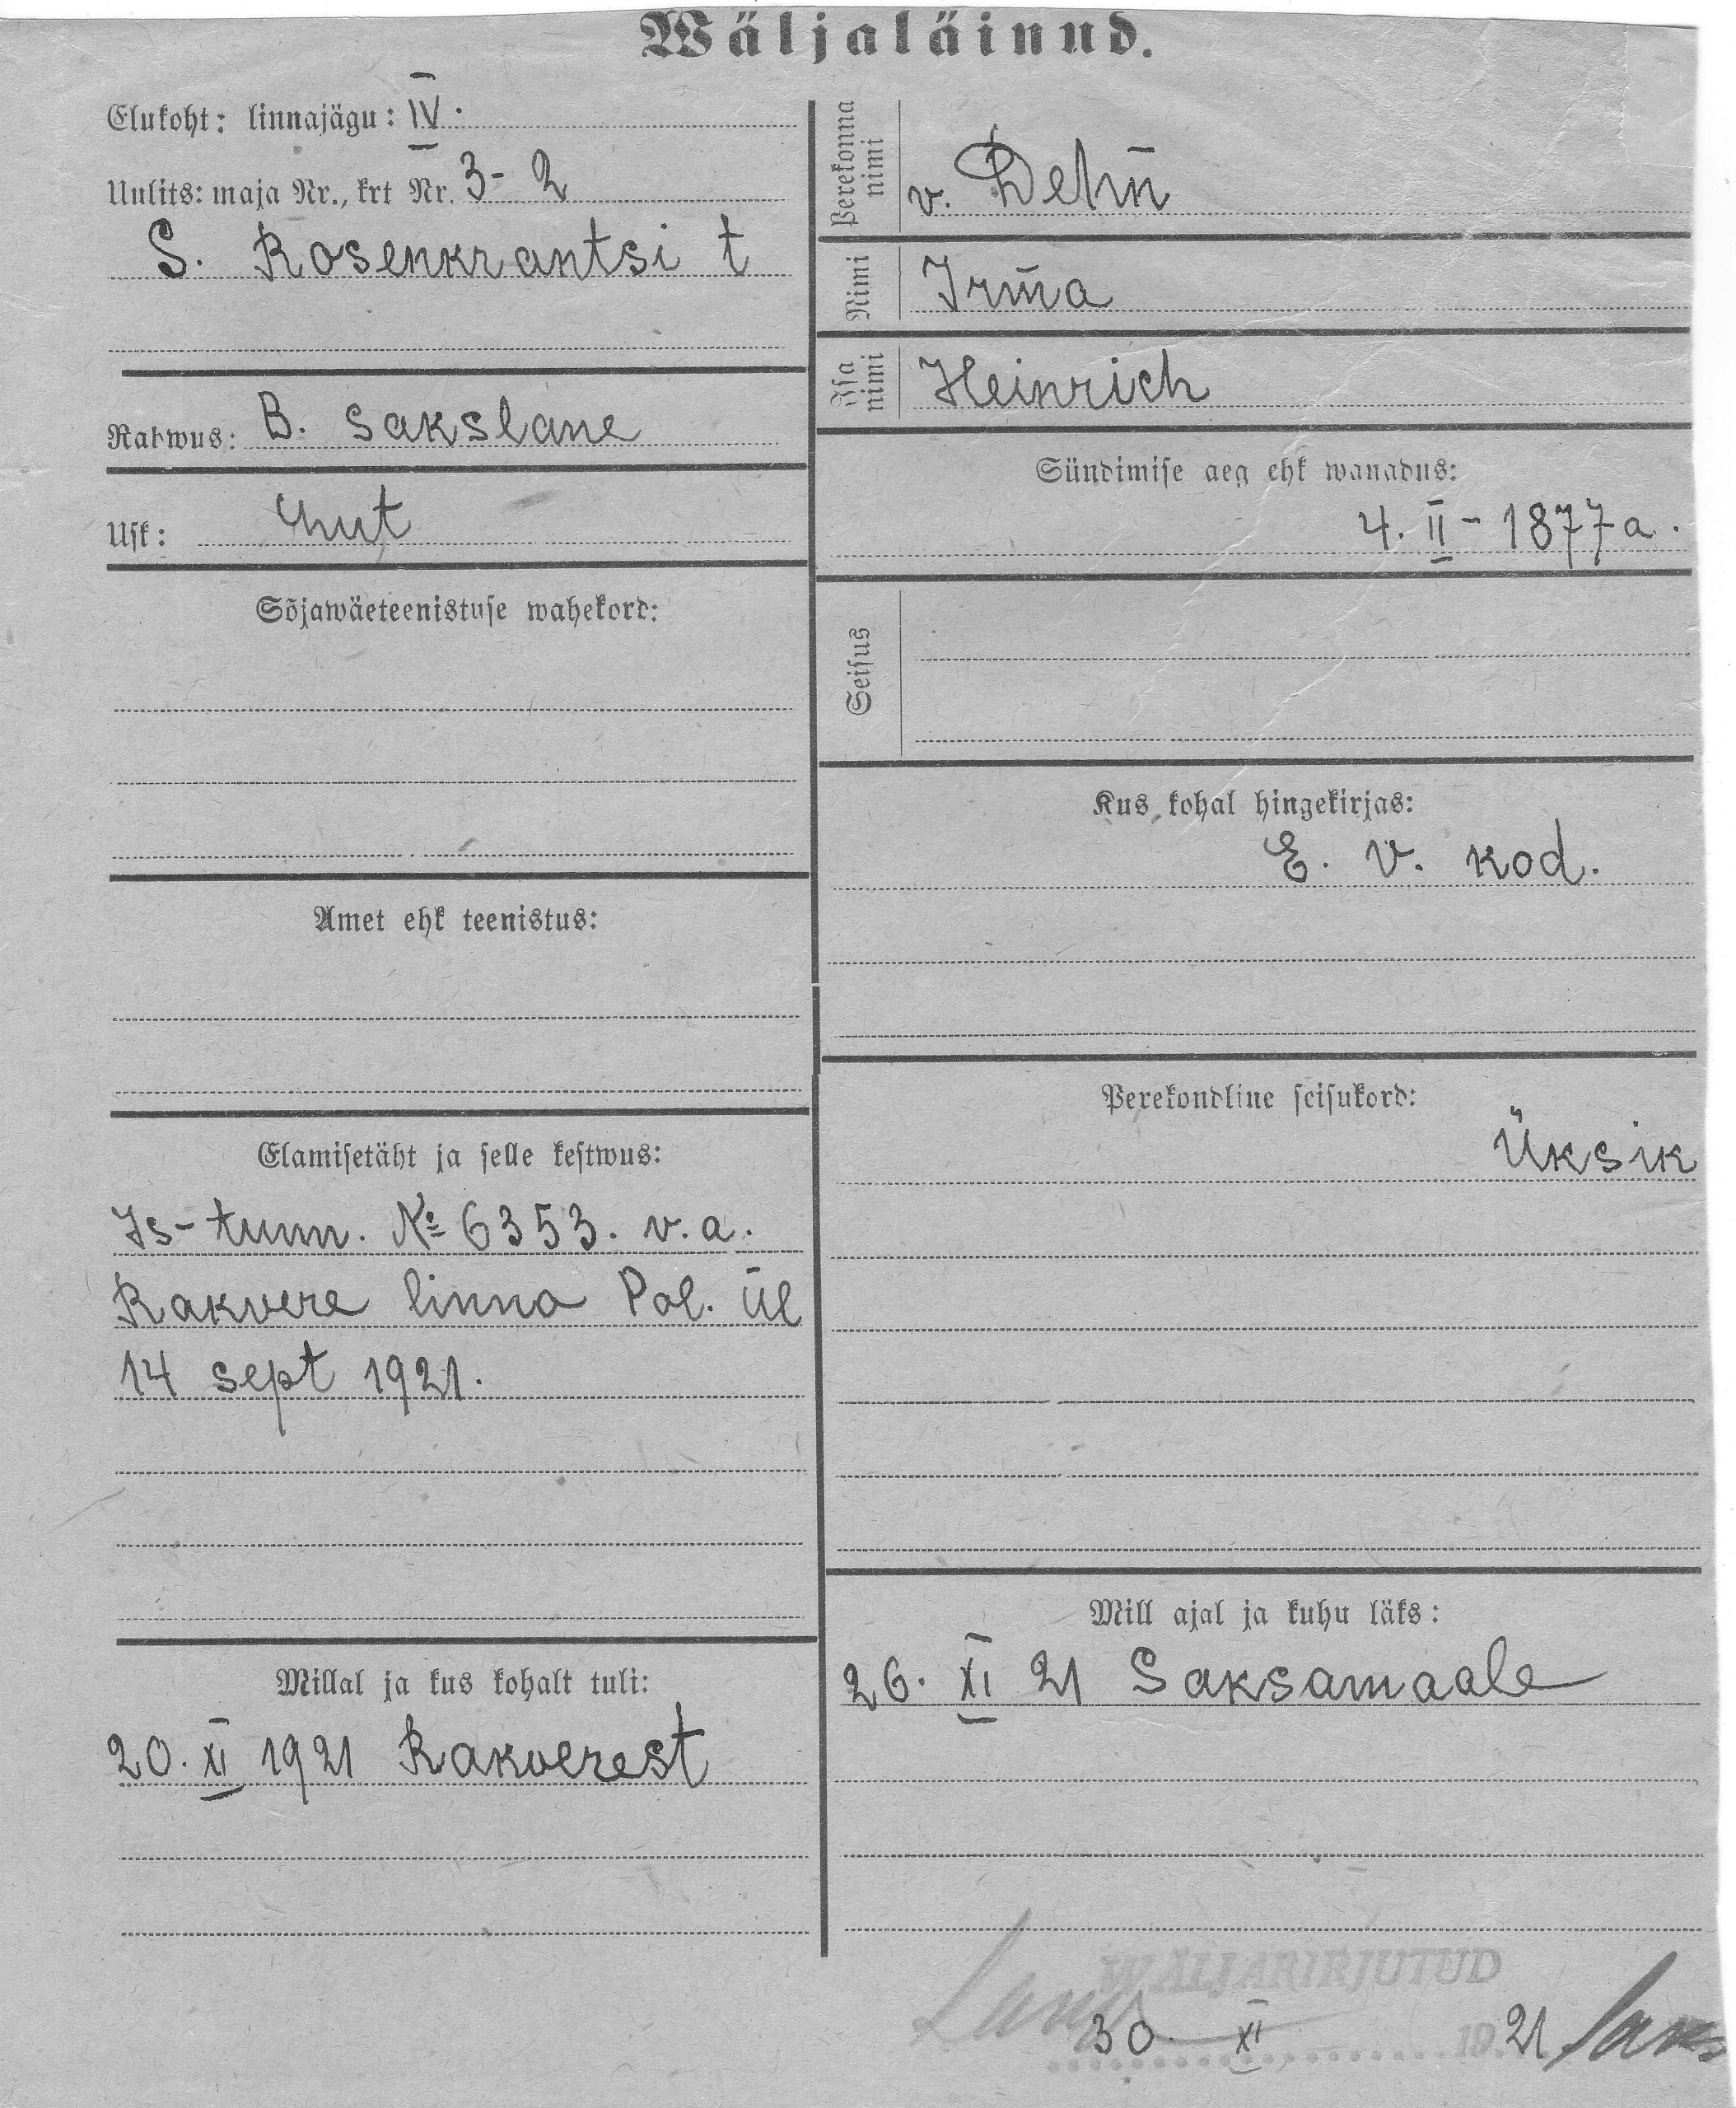 Wäljaläinud.
Elukoht: linnajägu: IV.
Uulits: maja Nr., krt Nr. 3-2
S. Rosenkrantsi t
Rahwus: B. sakslane
Usk: Lut
Sõjawäeteenistuse wahekord:
Amet ehk teenistus:
Elamisetäht ja selle kestwus:
Is-tunn. № 6353. v.a.
Rakvere linna Pol. ül
14 sept 1921.
Millal ja kus kohalt tuli:
20. XI 1921 Rakverest
Perekonna nimi
v. Dehn
Nimi
Irma
Isa nimi
Heinrich
Sündimise aeg ehk wanadus:
4. II - 1877 a.
Seisus
Kus kohal hingekirjas:
E. V. kod.
Perekondline seisukord:
Üksik
Mill ajal ja kuhu läks:
26. XI 21 Saksamaale
WÄLJAKIRJUTUD
30. XI 1921